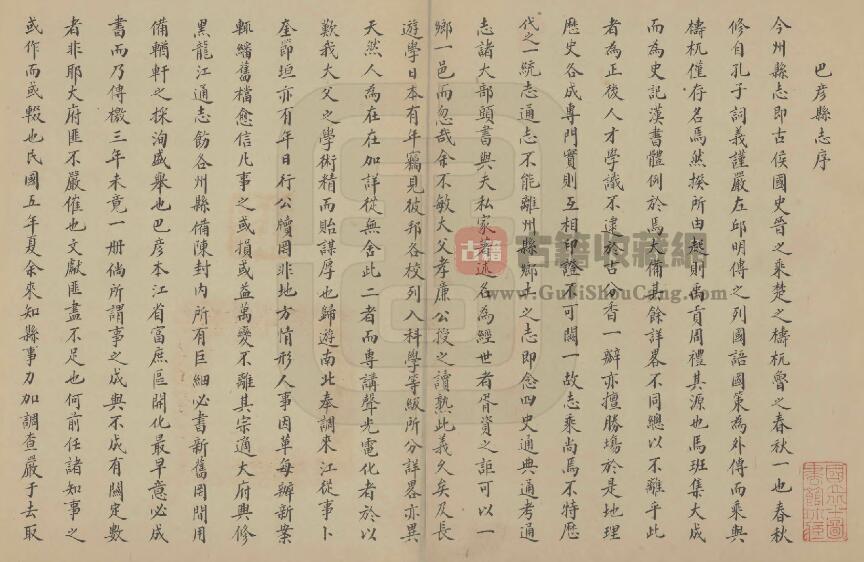 巴彥縣志序
今州縣志即古侯國史晉之乘楚之檮杌魯之春秋一也春秋
修自孔子詞義謹嚴左邱明傳之列國語國策為外傳而乘與
檮杌僅存名焉然揆所由起則禹貢周禮其源也馬班集大成
而為史記漢書體例於焉大備其餘詳畧不同總以不離乎此
者為正後人才學識不逮於古分香一瓣亦擅勝場於是地理
歷史各成專門實則互相印證不可闕一故志乘尚焉不特歷
代之一統志通志不能離州縣鄉土之志即念四史通典通考通
志諸大部頭書與夫私家著述名為經世者胥資之詎可以一
鄉一邑而忽哉余不敏大父孝廉公授之讀熟此義久矣及長
遊學日本有年竊見彼邦各校列入科學等級所分詳畧亦異
天然人為在在加詳從無舍此二者而專講聲光電化者於以
歎我大父之學術精而貽謀厚也歸遊南北奉調來江從事卜
奎節垣亦有年日行公牘罔非地方情形人事因革每辦新案
輒繙舊檔愈信凡事之或損或益萬變不離其宗適大府興修
黑龍江通志飭各州縣備陳封內所有巨細必書新舊罔間用
備輶軒之採洵盛舉也巴彥本江省富庶區開化最早意必成
書而乃傳檄三年未竟一冊倘所謂事之成與不成有關定數
者非耶大府匪不嚴催也文獻匪盡不足也何前任諸知事之
或作而或輟也民國五年夏余來知縣事力加調查嚴于去取
古籍
古籍收藏網
www.GuJiShouCang.com